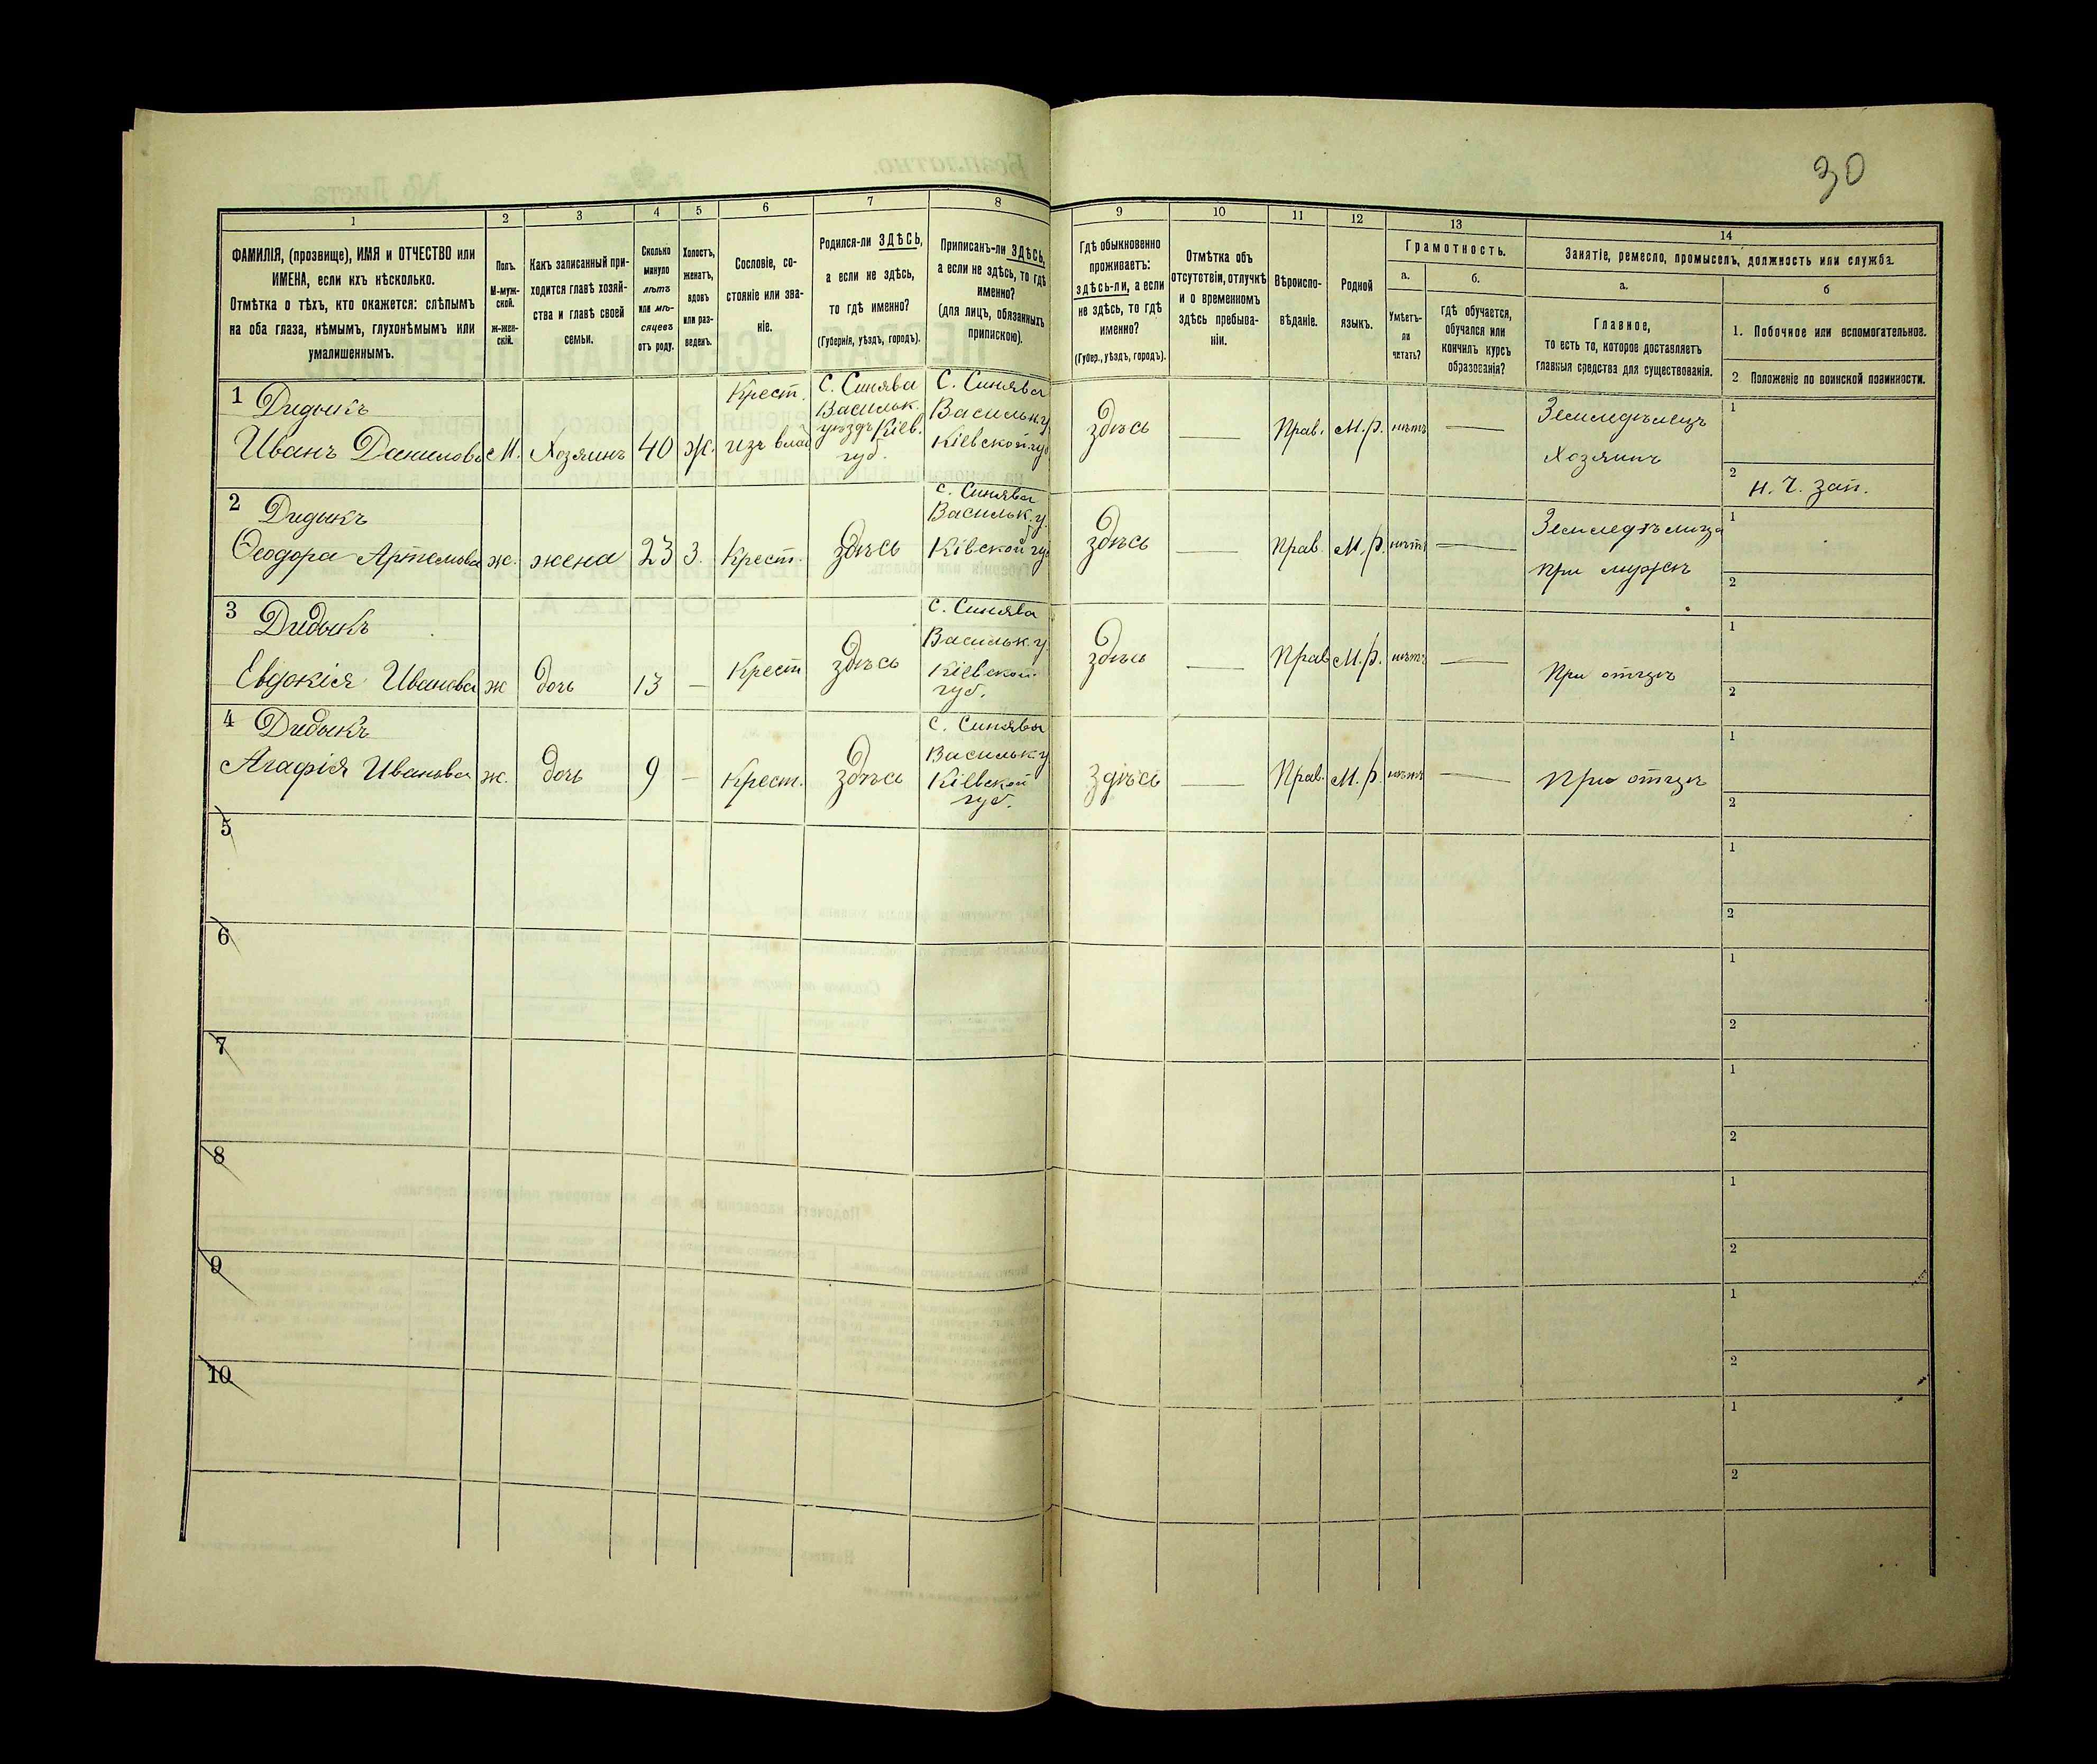 30
1 2 3 4 5 6 7 8 9 10 11 12 13 14
ФАМИЛІЯ, (прозвище), ИМЯ и ОТЧЕСТВО или
ИМЕНА, если ихъ нѣсколько.
Отмѣтка о тѣхъ, кто окажется: слѣпымъ
на оба глаза, нѣмымъ, глухонѣмымъ или
умалишеннымъ.
Полъ.
М-муж-
ской.
ж-жен-
скій.
Какъ записанный при-
ходится главѣ хозяй-
ства и главѣ своей
семьи.
Сколько
минуло
лѣтъ
или мѣ-
сяцевъ
отъ роду.
Холостъ,
женатъ,
вдовъ
или раз-
веденъ.
Сословіе, со-
стояніе или зва-
ніе.
Родился-ли ЗДѢСЬ,
а если не здѣсь,
то гдѣ именно?
(Губернія, уѣздъ, городъ).
Приписанъ-ли ЗДѢСЬ,
а если не здѣсь, то гдѣ
именно?
(для лицъ, обязанныхъ
припискою).
Гдѣ обыкновенно
проживаетъ:
здѣсь-ли, а если
не здѣсь, то гдѣ
именно?
(Губер., уѣздъ, городъ).
Отмѣтка объ
отсутствіи, отлучкѣ
и о временномъ
здѣсь пребыва-
ніи.
Вѣроиспо-
вѣданіе.
Родной
языкъ.
Грамотность.
а.
Умѣетъ-
ли
читать?
б.
гдѣ обучается,
обучался или
кончилъ курсъ
образованія?
Занятіе, ремесло, промыселъ, должность или служба.
а.
Главное,
то есть то, которое доставляетъ
главныя средства для существованія.
б
1. Побочное или вспомогательное.
2 Положеніе по воинской повинности.
1 Дидыкъ
Иванъ Данилова М. Хозяинъ 40 Ж.
Крест.
изъ влад
С. Синява
Васильк.
уѣздъ Кіев.
губ.
С. Синява
Васильк. у
Кіевской гу
здѣсь — Прав. М.р. нѣтъ —
Земледѣлецъ
Хозяинъ
1
2 н. ч. зап.
2 Дидыкъ
Ѳеодора Артемова ж. жена 23 З. Крест. здѣсь
с. Синява
Васильк. у.
Кіевской гу
здѣсь — Прав. М.р. нѣтъ —
Земледѣлица
при мужѣ
1
2
3 Дидыкъ
Евдокія Иванова ж дочь 13 — Крест здѣсь
с. Синява
Васильк. у
Кіевской
губ.
здѣсь — Прав М.р. нѣтъ —
При отцѣ
1
2
4 Дидыкъ
Агафія Иванова ж. дочь 9 — Крест. здѣсь
с. Синява
Васильк. у
Кіевской
губ.
здѣсь — Прав. М.р. нѣтъ —
При отцѣ
1
2
5
1
2
6
1
2
7
1
2
8
1
2
9
1
2
10
1
2